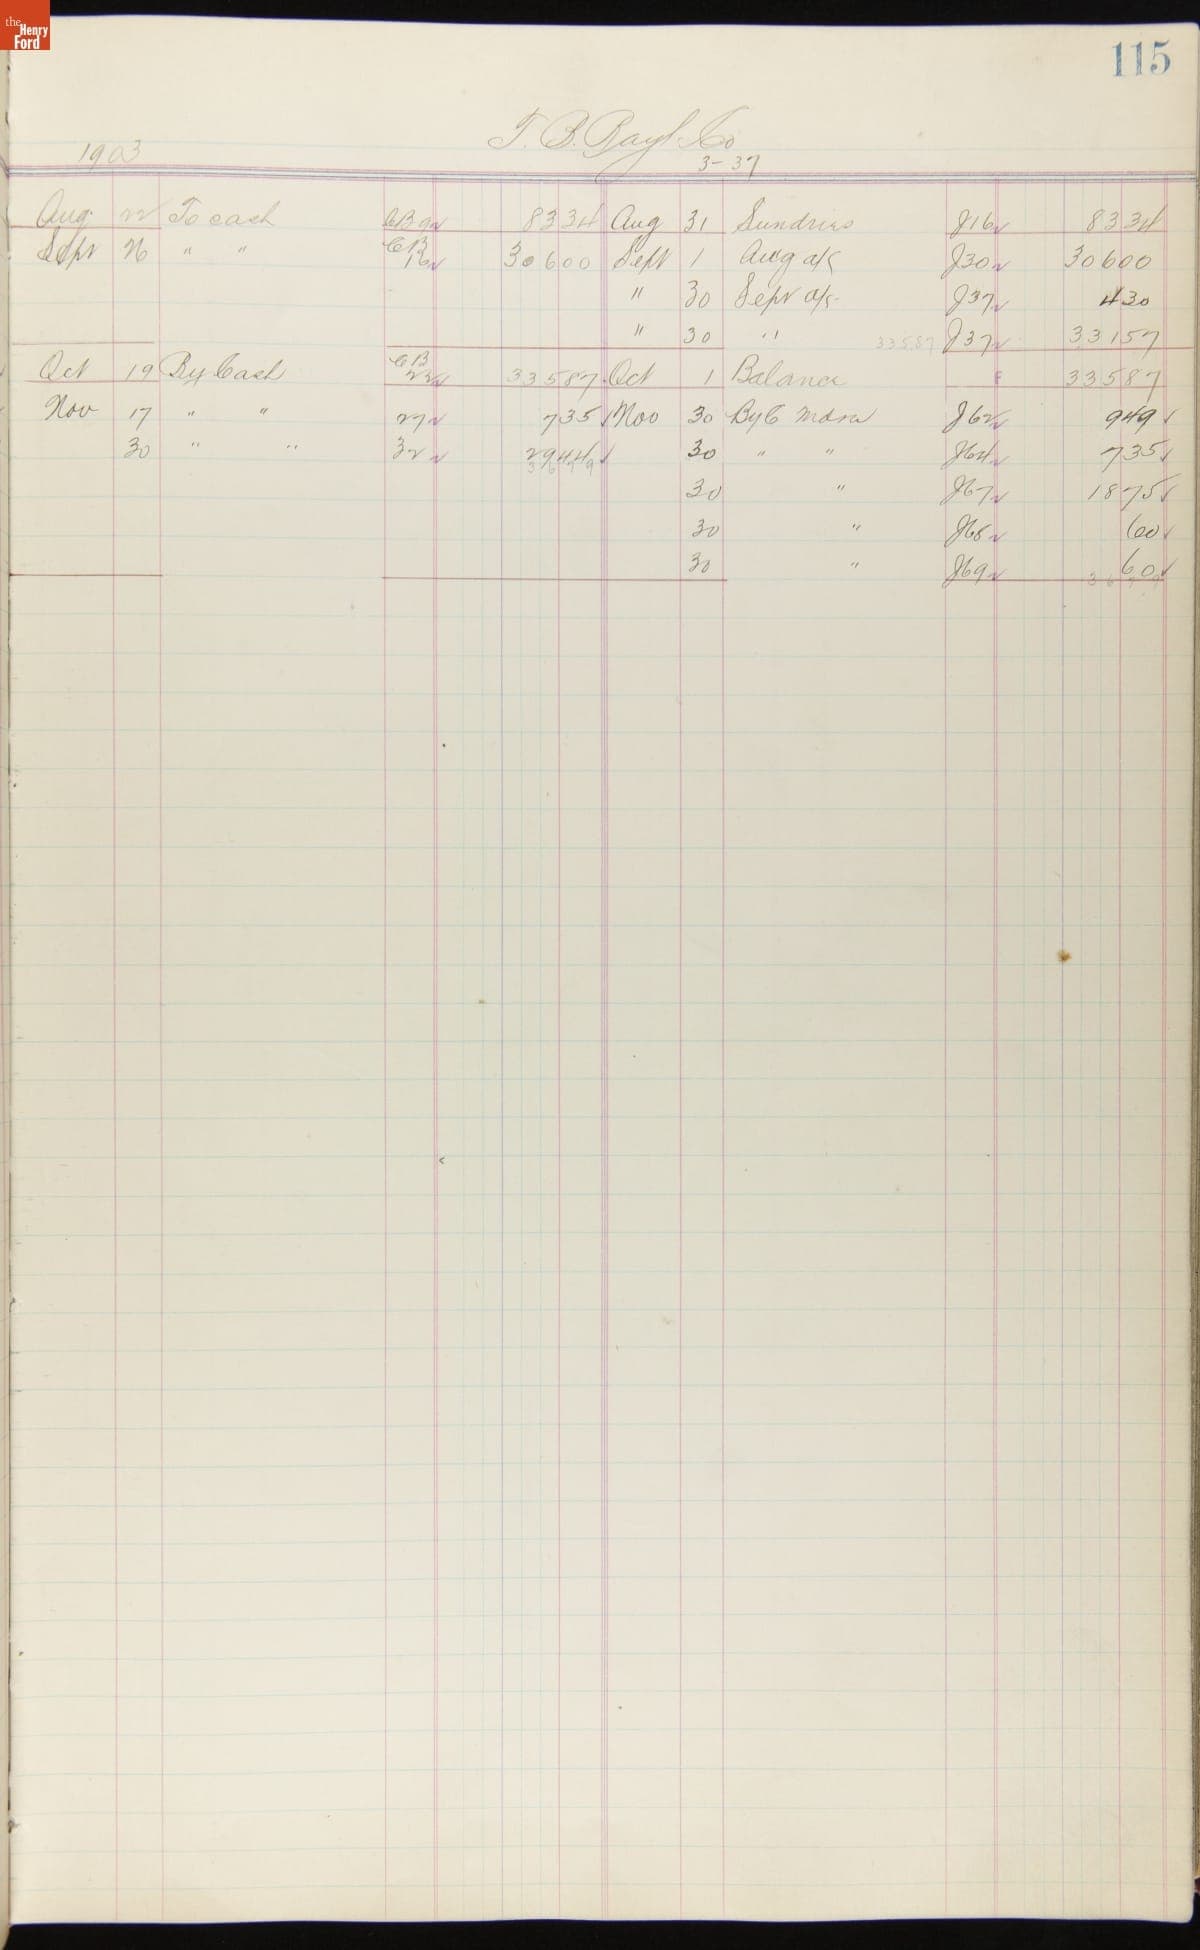 the Henry Ford
115
T. B. Rayl Co
1903 3-37
Aug. 22 To cash CB 9 83 34 Aug 31 Sundries J16 83 34
Sept 26 " " CB 16 306 00 Sept 1 Aug a/c J30 306 00
" 30 Sept a/c J37 4 30
" 30 " 33587 J37 331 57
Oct 19 By Cash CB 22 335 87 Oct 1 Balance 335 87
Nov 17 " " 27 7 35 Nov 30 By C Mdse J62 9 49
30 " " 32 29 44 30 " " J64 7 35
36 79
30 " J67 18 75
30 " J68 60
30 " J69 60
36 79